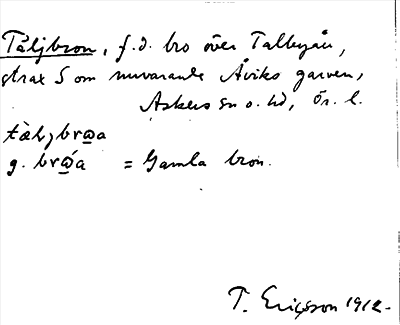 Täljbron, f.d. bro över Talbyån,
strax S om nuvarande Åviks garveri,
Askers sn o. hd, Ör. l.
tæl,brωa
g. brώa = Gamla bron.
T. Ericsson 1912.